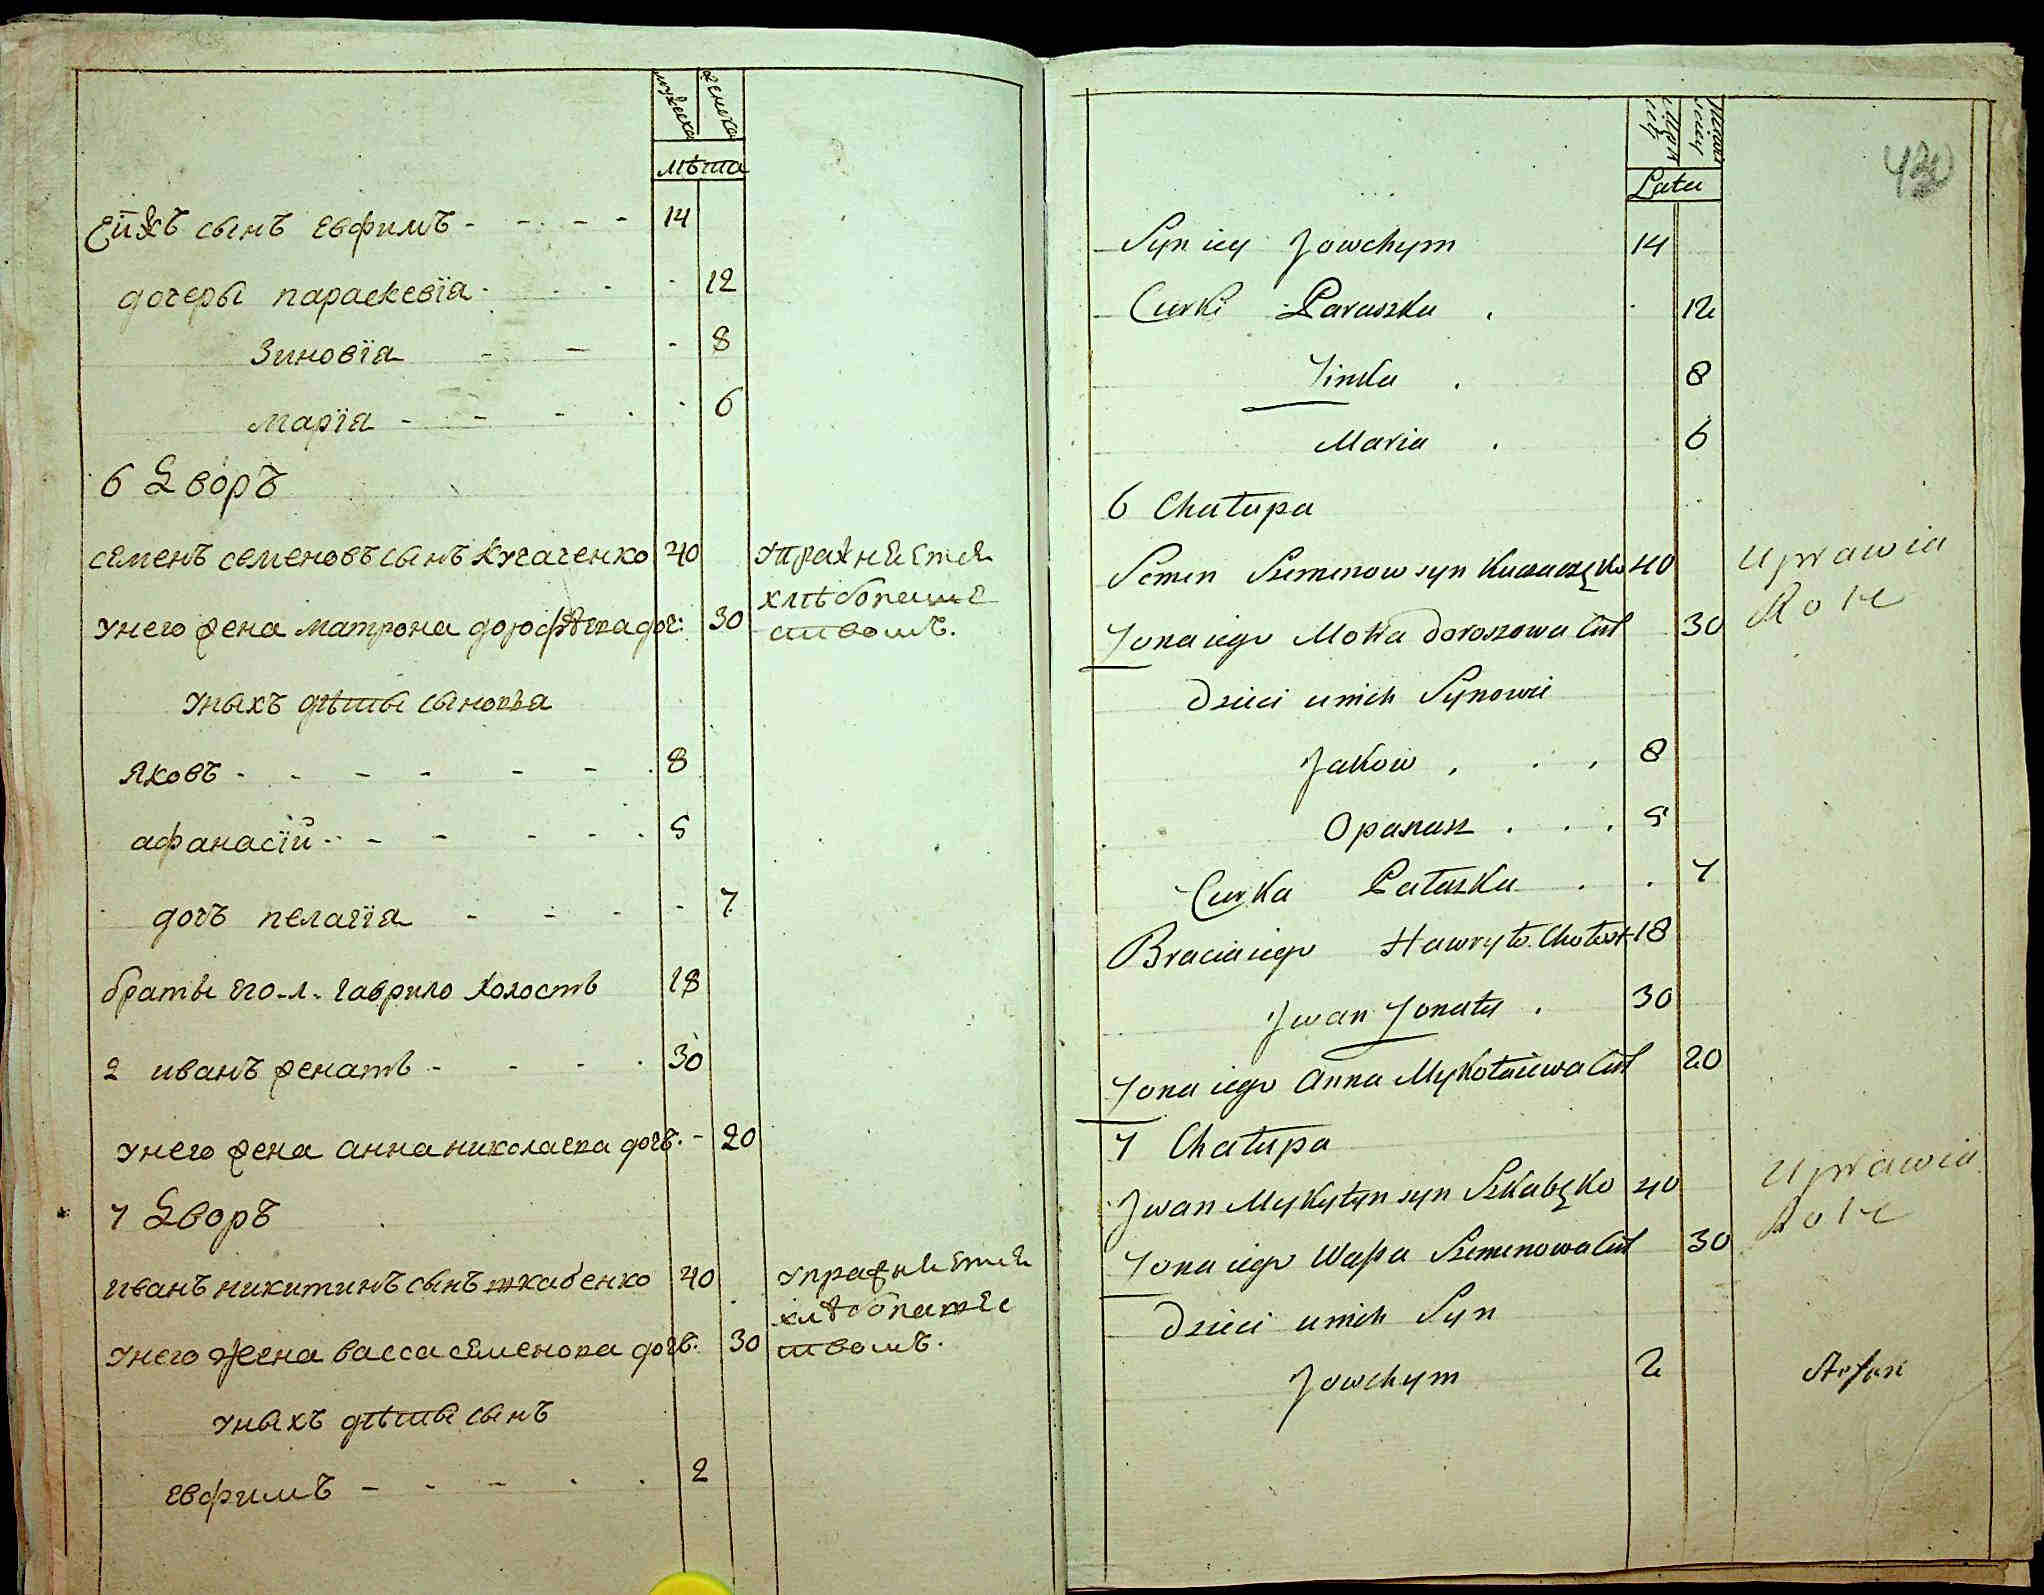 мужеска женска
лѣта
сынъ Евфимъ - - - - 14
дочеры параскевїа - - - 12
Зиновїа - - - 8
марїа - - - 6
6 Дворъ
семенъ семеновъ сынъ Кучаченко 40 упражняется
хлѣбопаше
унего жена матрона дорофѣева доч: 30 ствомъ.
уныхъ дѣты сыновья
Яковъ - - - - - - 8
афанасїй - - - - - 5
дочъ пелагїа - - - - 7
браты его -л- гаврило холостъ 18
2 иванъ женатъ - - - 30
унего жена анна николаева дочъ. - 20
7 Дворъ
иванъ никитинъ сынъ шкабенко 40 упражняется
хлѣбопаше
унего жена васса семенова дочъ. 30 ствомъ.
уныхъ дѣты сынъ
евфимъ - - - - - 2
Lata
Syn iey Jowchym 14
Curki Paraszka . 12
Zinka . 8
Maria . 6
6 Chałupa
Semen Szemenow syn Kuczaczęko 40 Uprawia
Role
Zona iego Motra Doroszowa Cur 30
Dzieci u nich Synowie
Jakow . . . 8
Opanas . . . 5
Curka Pałaszka . . 7
Bracia iego Hawryło 18
Jwan Zonaty . 30
Zona iego Anna Mykołaiewa Cur 20
7 Chałupa
Jwan Mykytyn syn Szkabęko 40 Uprawia
Role
Zona iego Wassa Szemenowa Cur 30
Dzieci u nich Syn
Jowchym 2